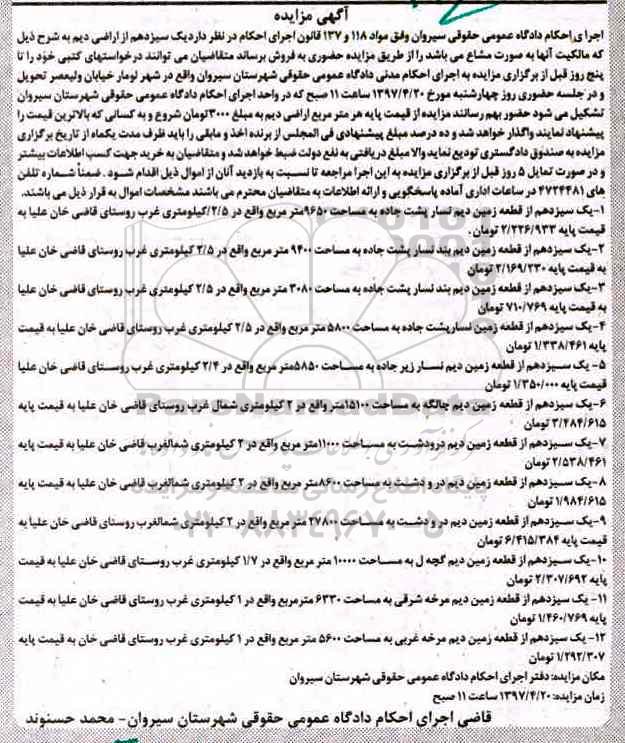 آگهی مزایده
اجرای احکام دادگاه عمومی حقوقی سیروان وفق مواد ۱۱۸ و ۱۳۷ قانون اجرای احکام در نظر دارد یک سیزدهم از اراضی دیم به شرح ذیل
که مالکیت آنها به صورت مشاع می باشد را از طریق مزایده حضوری به فروش برساند متقاضیان می توانند درخواستهای کتبی خود را تا
پنج روز قبل از برگزاری مزایده به اجرای احکام مدنی دادگاه عمومی حقوقی شهرستان سیروان واقع در شهر لومار خیابان ولیعصر تحویل
و در جلسه حضوری روز چهارشنبه مورخ ۱۳۹۷/۴/۲۰ ساعت ۱۱ صبح که در واحد اجرای احکام دادگاه عمومی حقوقی شهرستان سیروان
تشکیل می شود حضور بهم رسانند مزایده از قیمت پایه هر متر مربع اراضی دیم به مبلغ ۳۰۰۰تومان شروع و به کسانی که بالاترین قیمت را
پیشنهاد نمایند واگذار خواهد شد و ده درصد مبلغ پیشنهادی فی المجلس از برنده اخذ و مابقی را باید ظرف مدت یکماه از تاریخ برگزاری
مزایده به صندوق دادگستری تودیع نماید والا مبلغ دریافتی به نفع دولت ضبط خواهد شد و متقاضیان به خرید جهت کسب اطلاعات بیشتر
و در صورت تمایل ۵ روز قبل از برگزاری مزایده به این اجرا مراجعه تا نسبت به بازدید آنان از اموال ذیل اقدام شود . ضمناً شماره تلفن
های ۴۷۲۴۴۸۱ در ساعات اداری آماده پاسخگویی و ارائه اطلاعات به متقاضیان محترم می باشند مشخصات اموال به قرار ذیل می باشند.
۱-یک سیزدهم از قطعه زمین دیم نسار پشت جاده به مساحت ۹۶۵۰متر مربع واقع در ۲/۵/کیلومتری غرب روستای قاضی خان علیا به
قیمت پایه ۲/۲۲۶/۹۳۳ تومان .
۲-یک سیزدهم از قطعه زمین دیم بند نسار پشت جاده به مساحت ۹۴۰۰ متر مربع واقع در ۲/۵ کیلومتری غرب روستای قاضی خان علیا
به قیمت پایه ۲/۱۶۹/۲۳۰ تومان
۳-یک سیزدهم از قطعه زمین دیم بند نسار پشت جاده به مساحت ۳۰۸۰ متر مربع واقع در ۲/۵ کیلومتری غرب روستای قاضی خان علیا
به قیمت پایه ۷۱۰/۷۶۹ تومان
۴-یک سیزدهم از قطعه زمین نسارپشت جاده به مساحت ۵۸۰۰ متر مربع واقع در ۲/۵ کیلومتری غرب روستای قاضی خان علیا به قیمت
پایه ۱/۳۳۸/۴۶۱ تومان
۵- یک سیزدهم از قطعه زمین دیم نسار زیر جاده به مساحت ۵۸۵۰متر مربع واقع در ۲/۴ کیلومتری غرب روستای قاضی خان علیا
قیمت پایه ۱/۳۵۰/۰۰۰ تومان
۶-یک سیزدهم از قطعه زمین دیم چالگه به مساحت ۱۵۱۰۰متر واقع در ۲ کیلومتری شمال غرب روستای قاضی خان علیا به قیمت پایه
۳/۴۸۴/۶۱۵ تومان
۷-یک سیزدهم از قطعه زمین دیم درودشت به مساحت ۱۱۰۰۰متر مربع واقع در ۲ کیلومتری شمالغرب قاضی خان علیا به قیمت پایه
۲/۵۳۸/۴۶۱ تومان
۸-یک سیزدهم از قطعه زمین دیم در و دشت به مساحت ۸۶۰۰متر مربع واقع در ۲ کیلومتری شمالغرب قاضی خان علیا به قیمت پایه
۱/۹۸۴/۶۱۵ تومان
۹-یک سیزدهم از قطعه زمین دیم در و دشت به مساحت ۲۷۸۰۰ متر مربع واقع در ۲ کیلومتری شمالغرب روستای قاضی خان علیا به
قیمت پایه ۶/۴۱۵/۳۸۴ تومان
۱۰-یک سیزدهم از قطعه زمین دیم گچه ل به مساحت ۱۰۰۰۰ متر مربع واقع در ۱/۷ کیلومتری غرب روستای قاضی خان علیا به قیمت
پایه ۲/۳۰۷/۶۹۲ تومان
۱۱-یک سیزدهم از قطعه زمین دیم مرخه شرقی به مساحت ۶۳۳۰ مترمربع واقع در ۱ کیلومتری غرب روستای قاضی خان علیا به قیمت
پایه ۱/۴۶۰/۷۶۹ تومان
۱۲-یک سیزدهم از قطعه زمین دیم مرخه غربی به مساحت ۵۶۰۰ متر مربع واقع در ۱ کیلومتری غرب روستای قاضی خان به قیمت پایه
۱/۲۹۲/۳۰۷ تومان
مکان مزایده: دفتر اجرای احکام دادگاه عمومی حقوقی شهرستان سیروان
زمان مزایده: ۱۳۹۷/۴/۲۰ ساعت ۱۱ صبح
قاضی اجرای احکام دادگاه عمومی حقوقی شهرستان سیروان- محمد حسنوند
ParsNamadData
۰۲۱-۸۸۳۴۹۶۷۰-۵